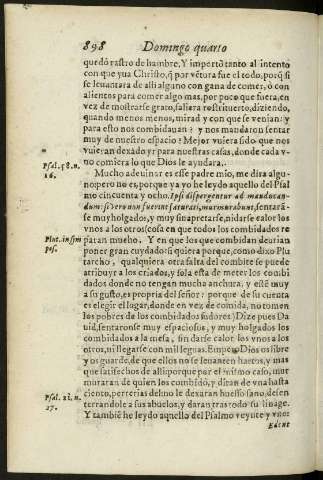 898 Domingo quarto
quedó rastro de hambre, Y importó tanto al intento
con que yua Christo, q̃ por vẽtura fue el todo, porq̃ si
se leuantara de alli alguno con gana de comer, ó con
alientos para comer algo mas, por puco que fuera, en
vez de mostrarse grato, saliera rostrituerto, diziendo,
quando menos menos, mirad y con que se venian: y
para esto nos combidauan? y nos mandaron sentar
muy de nuestro espacio? Mejor vuiera sido que nos
vuieran dexado yr para nuestras casas, donde cada v-
no comiera lo que Dios le ayudara.
Psal. 58. n.
16.
Mucho adeuinar es esse padre mio, me dira algu-
no pero no es, porque ya yo he leydo aquello del Psal
mo cincuenta y ocho. Ipsi dispergentur ad manducan-
dum: si vero non fuerint saturati, murmurabunt, sentará-
se muy holgados, y muy sin apretarse, ni darse calor los
vnos a los otros (cosa en que todos los combidados re
Plut. in sym
pos.
paran mucho. Y en que los que combidan deurian
poner gran cuydado: si quiera porque, como dixo Plu
tarcho, qualquiera otra falta del combite se puede
atribuyr a los criados, y sola esta de meter los combi
dados donde no tengan mucha anchura, y esté muy
a su gusto, es propria del señor: porque de su cuenta
es elegir el lugar, donde en vez de comida, no tomen
los pobres de los combidados sudores) Dize pues Da
uid, sentaronse muy espaciosos, y muy holgados los
combidados a la mesa, sin darse calor los vnos a los
otros, ni llegarse con mil leguas. Empero Dios os libre
y os guarde, de que ellos no se leuanten hartos, y mas
que satisfechos de alli porque por el mismo caso, mur
muraran de quien los combidó, y diran de vna hasta
ciento, perrerias del no le dexaran huesso sano, desen
Psal. 21. n.
27.
terrandole a sus abuelos, y daran tras todo su linage.
Y tambiẽ he leydo aquello del Psalmo veynte y vno:
Edent